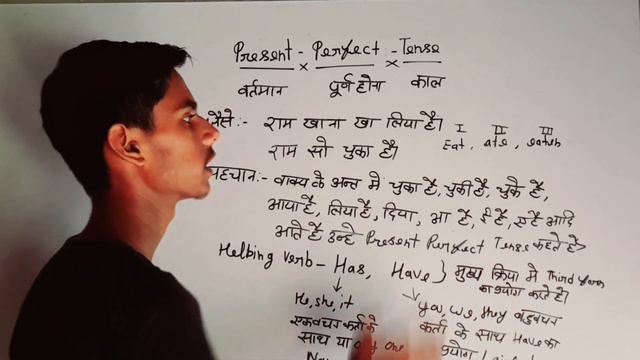 Present - Perfect - Tense
वर्तमान × पूर्ण होना × काल
जैसे:- राम खाना खा लिया है।
I II III
Eat, ate, eaten
राम सो चुका है।
पहचान:- वाक्य के अन्त मे चुका है, चुकी है, चुके है,
आया है, लिया है, दिया, आ है, ई है, ए है आदि
आते है उन्हे Present Perfect Tense कहते है
Helbing verb - Has, Have } मुख्य क्रिया मे Third
का प्रयोग करते है।
He, she, it
you, we, they बहुवचन
एकवचन कर्ता के
कर्ता के साथ Have का
साथ या one